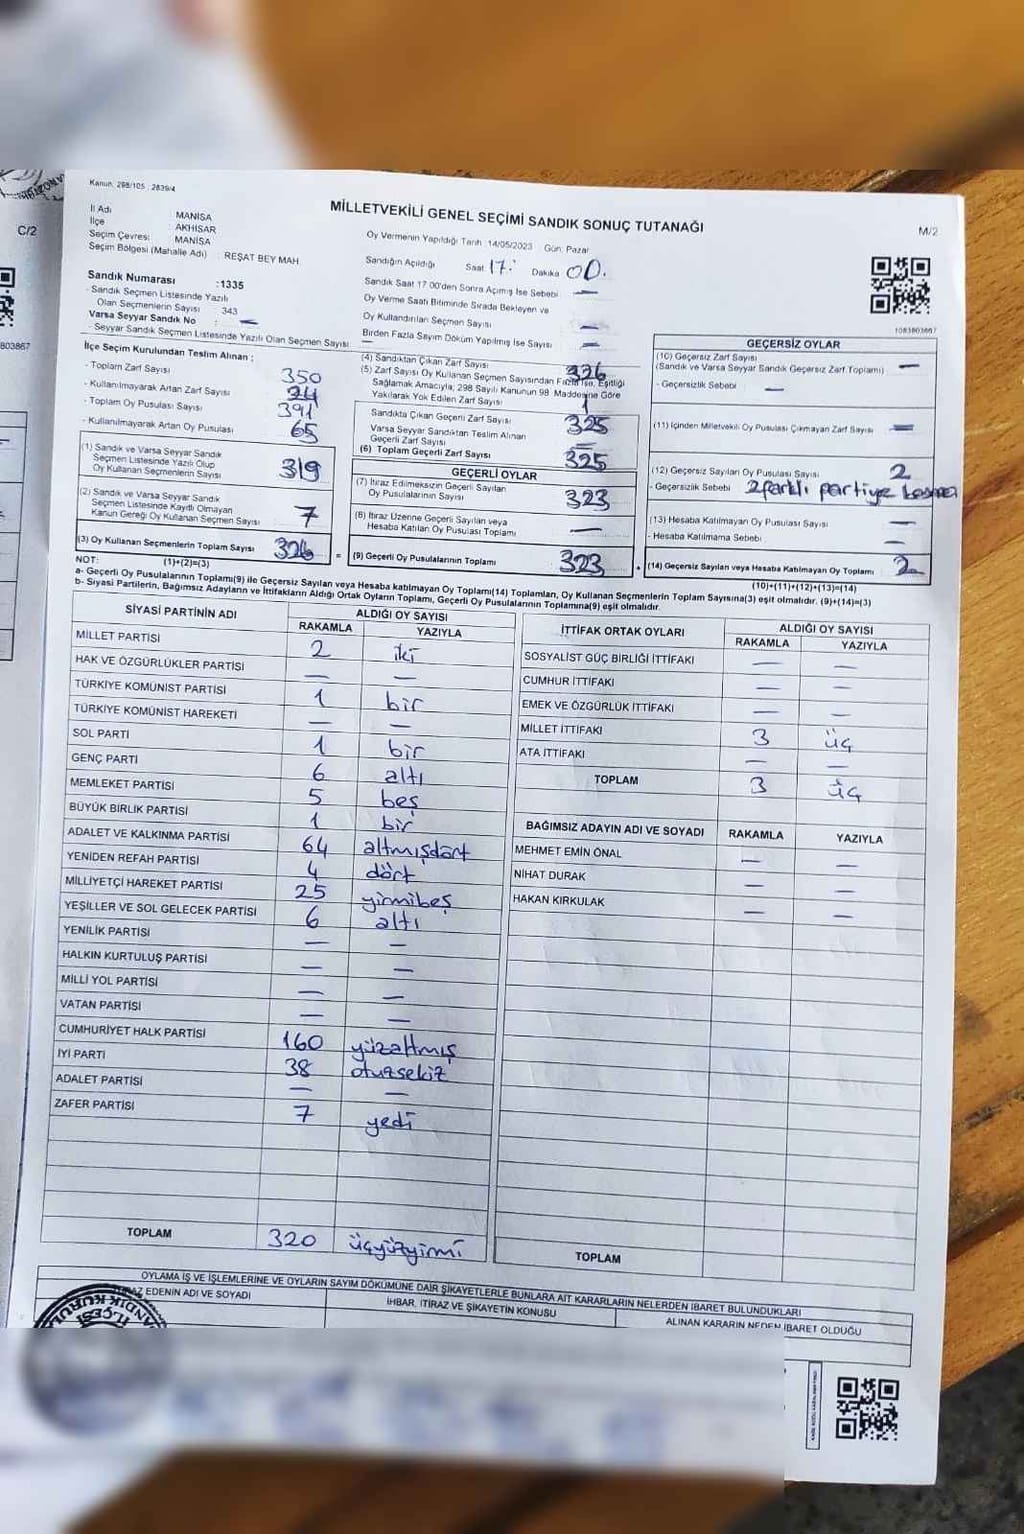 Kanun: 298/105 , 2839/4
MİLLETVEKİLİ GENEL SEÇİMİ SANDIK SONUÇ TUTANAĞI
C/2
M/2
İl Adı : MANİSA
İlçe : AKHİSAR
Seçim Çevresi : MANİSA
Seçim Bölgesi (Mahalle Adı) : REŞAT BEY MAH.
Oy Vermenin Yapıldığı Tarih :14/05/2023 Gün: Pazar
Sandığın Açıldığı Saat 17: Dakika 00.
Sandık Saat 17.00'den Sonra Açımış İse Sebebi —
Oy Verme Saati Bitiminde Sırada Bekleyen ve
Oy Kullandırılan Seçmen Sayısı —
Birden Fazla Sayım Döküm Yapılmış İse Sayısı —
1083803867
803867
Sandık Numarası :1335
- Sandık Seçmen Listesinde Yazılı
Olan Seçmenlerin Sayısı 343
Varsa Seyyar Sandık No : —
- Seyyar Sandık Seçmen Listesinde Yazılı Olan Seçmen Sayısı: —
İlçe Seçim Kurulundan Teslim Alınan :
- Toplam Zarf Sayısı 350
- Kullanılmayarak Artan Zarf Sayısı 24
- Toplam Oy Pusulası Sayısı 391
- Kullanılmayarak Artan Oy Pusulası 65
(1) Sandık ve Varsa Seyyar Sandık
Seçmen Listesinde Yazılı Olup
Oy Kullanan Seçmenlerin Sayısı 319
(2) Sandık ve Varsa Seyyar Sandık
Seçmen Listesinde Kayıtlı Olmayan
Kanun Gereği Oy Kullanan Seçmen Sayısı 7
(3) Oy Kullanan Seçmenlerin Toplam Sayısı 326
(1)+(2)=(3)
(4) Sandıktan Çıkan Zarf Sayısı 326
(5) Zarf Sayısı Oy Kullanan Seçmen Sayısından Fazla İse, Eşitliği
Sağlamak Amacıyla; 298 Sayılı Kanunun 98. Maddesine Göre
Yakılarak Yok Edilen Zarf Sayısı 1
Sandıkta Çıkan Geçerli Zarf Sayısı 325
Varsa Seyyar Sandıktan Teslim Alınan
Geçerli Zarf Sayısı —
(6) Toplam Geçerli Zarf Sayısı 325
GEÇERLİ OYLAR
(7) İtiraz Edilmeksizin Geçerli Sayılan
Oy Pusulalarının Sayısı 323
(8) İtiraz Üzerine Geçerli Sayılan veya
Hesaba Katılan Oy Pusulası Toplamı —
= (9) Geçerli Oy Pusulalarının Toplamı 323
GEÇERSİZ OYLAR
(10) Geçersiz Zarf Sayısı
(Sandık ve Varsa Seyyar Sandık Geçersiz Zarf Toplamı) —
- Geçersizlik Sebebi —
(11) İçinden Milletvekili Oy Pusulası Çıkmayan Zarf Sayısı —
(12) Geçersiz Sayılan Oy Pusulası Sayısı 2
- Geçersizlik Sebebi 2 farklı partiye
(13) Hesaba Katılmayan Oy Pusulası Sayısı —
- Hesaba Katılmama Sebebi —
+ (14) Geçersiz Sayılan veya Hesaba Katılmayan Oy Toplamı 2
(10)+(11)+(12)+(13)=(14)
NOT:
a- Geçerli Oy Pusulalarının Toplamı(9) ile Geçersiz Sayılan veya Hesaba katılmayan Oy Toplamı(14) Toplamları, Oy Kullanan Seçmenlerin Toplam Sayısına(3) eşit olmalıdır. (9)+(14)=(3)
b- Siyasi Partilerin, Bağımsız Adayların ve İttifakların Aldığı Ortak Oyların Toplamı, Geçerli Oy Pusulalarının Toplamına(9) eşit olmalıdır.
SİYASİ PARTİNİN ADI ALDIĞI OY SAYISI
RAKAMLA YAZIYLA
MİLLET PARTİSİ 2 iki
HAK VE ÖZGÜRLÜKLER PARTİSİ — —
TÜRKİYE KOMÜNİST PARTİSİ 1 bir
TÜRKİYE KOMÜNİST HAREKETİ — —
SOL PARTİ 1 bir
GENÇ PARTİ 6 altı
MEMLEKET PARTİSİ 5 beş
BÜYÜK BİRLİK PARTİSİ 1 bir
ADALET VE KALKINMA PARTİSİ 64 altmışdört
YENİDEN REFAH PARTİSİ 4 dört
MİLLİYETÇİ HAREKET PARTİSİ 25 yirmibeş
YEŞİLLER VE SOL GELECEK PARTİSİ 6 altı
YENİLİK PARTİSİ — —
HALKIN KURTULUŞ PARTİSİ — —
MİLLİ YOL PARTİSİ — —
VATAN PARTİSİ — —
CUMHURİYET HALK PARTİSİ 160 yüzaltmış
İYİ PARTİ 38 otuzsekiz
ADALET PARTİSİ — —
ZAFER PARTİSİ 7 yedi
TOPLAM 320 üçyüzyirmi
İTTİFAK ORTAK OYLARI ALDIĞI OY SAYISI
RAKAMLA YAZIYLA
SOSYALİST GÜÇ BİRLİĞİ İTTİFAKI — —
CUMHUR İTTİFAKI — —
EMEK VE ÖZGÜRLÜK İTTİFAKI — —
MİLLET İTTİFAKI 3 üç
ATA İTTİFAKI — —
TOPLAM 3 üç
BAĞIMSIZ ADAYIN ADI VE SOYADI RAKAMLA YAZIYLA
MEHMET EMİN ÖNAL — —
NİHAT DURAK — —
HAKAN KIRKULAK — —
TOPLAM
OYLAMA İŞ VE İŞLEMLERİNE VE OYLARIN SAYIM DÖKÜMÜNE DAİR ŞİKAYETLERLE BUNLARA AİT KARARLARIN NELERDEN İBARET BULUNDUKLARI
EDENİN ADI VE SOYADI
İHBAR, İTİRAZ VE ŞİKAYETİN KONUSU
ALINAN KARARIN NEDEN İBARET OLDUĞU